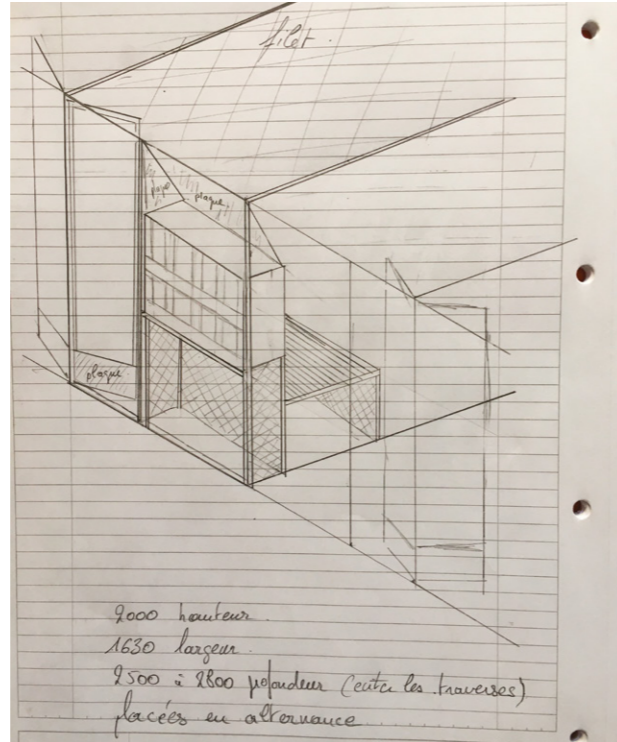 filet.
plaque
plaque
plaque
2000 hauteur
1630 largeur.
2500 à 2800 profondeur (entre les traverses)
placées en alternance